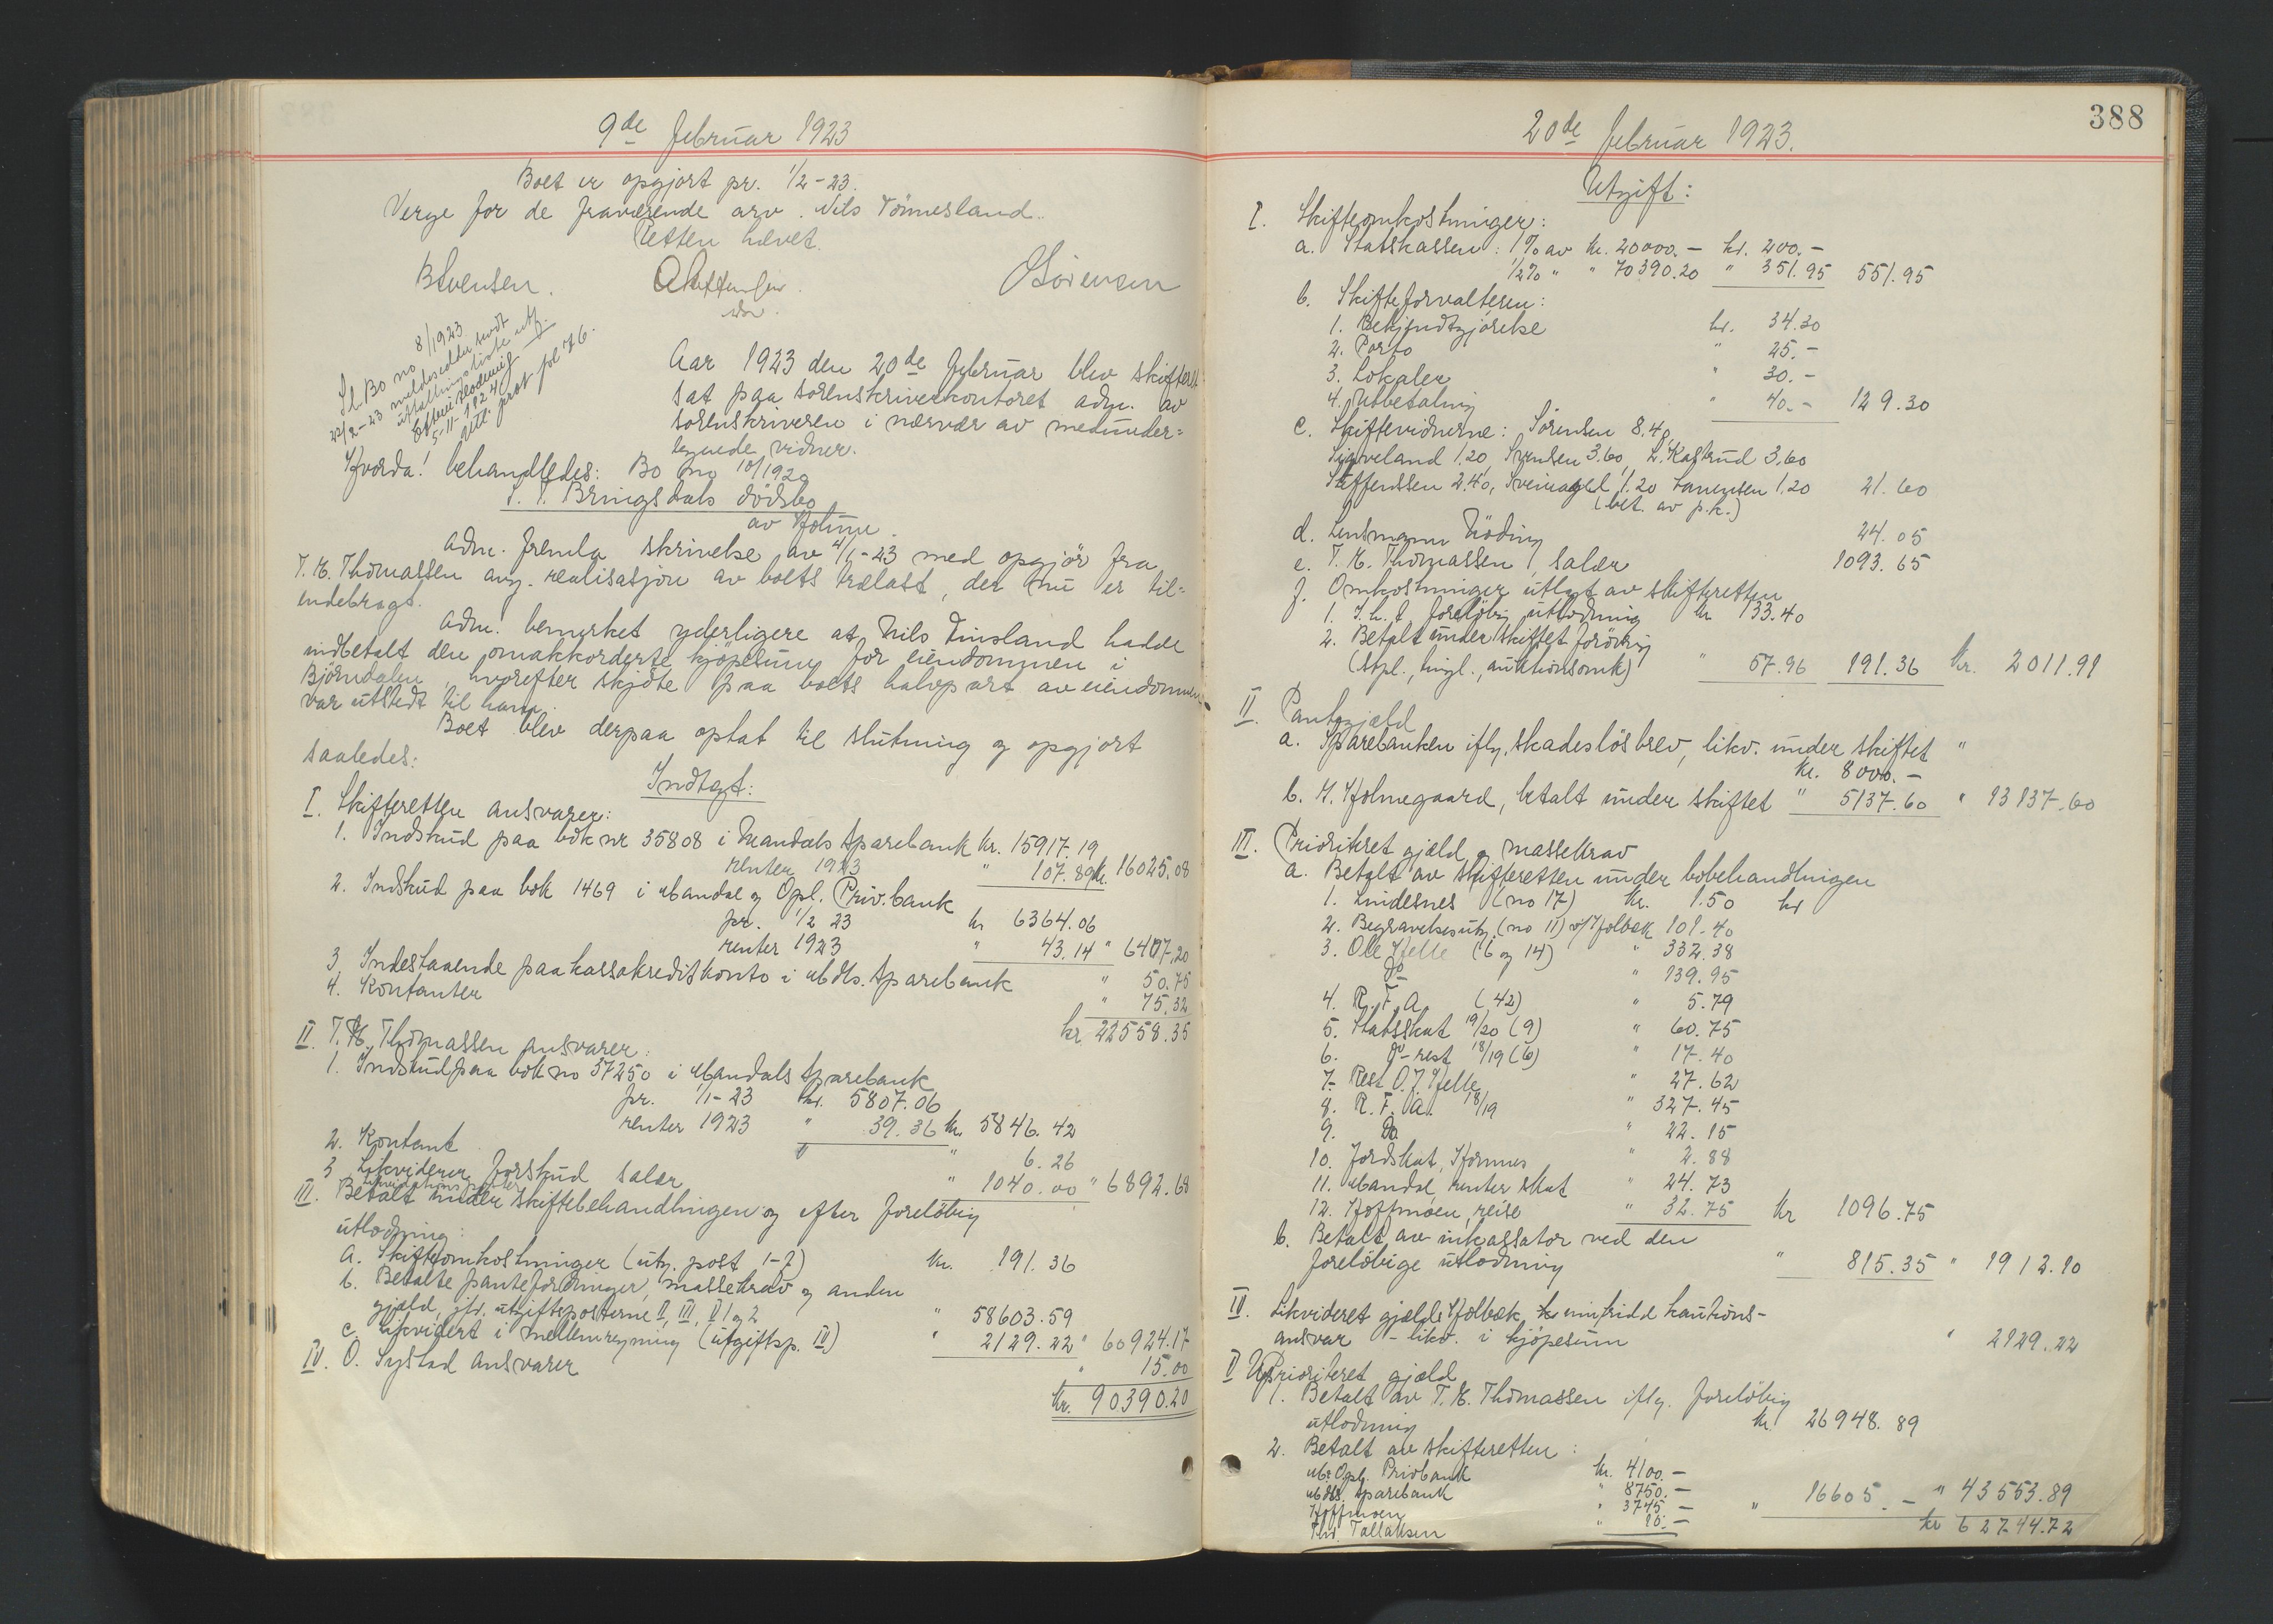 9de februar 1923
Boet er opgjort pr. 1/2-23.
Verge for de fraværende arv. Nils Tönnesland.
Retten hævet.
BSvensen.
OSörensen
Sl. Bo no 8/1923
22/2-23 meldesedler sendt
5-11-1924
Aar 1923 den 20de februar blev skifteret
sat paa sorenskriverkontoret adm. av
sorenskriveren i nærvær av medunder=
tegnede vidner.
Hvorda! behandledes: Bo no 10/1920
T. T. Bringsdals dödsbo
av Holume.
Adm. fremla skrivelse av 4/1-23 med opgjör fra
T. K. Thomassen ang. realisasjon av boets trælast, der nu er til=
endebragt.
Adm. bemerket yderligere at Nils Tinsland hadde
indbetalt den omakkorderte kjöpesum for eiendommen i
Björndalen, hvorefter skjöte paa boets halvpart av eiendommen
var utstedt til ham.
Boet blev derpaa optat til slutning og opgjort
saaledes:
Indtægt:
I. Skifteretten ansvarer:
1. Indskud paa bok nr 35808 i Mandals Sparebank kr. 15917.19
renter 1923 " 107.89 kr. 16025.08
2. Indskud paa bok 1469 i Mandal og Opl. Priv.bank
pr. 1/2 23 kr 6364.06
renter 1923 " 43.14 " 6407.20
3 Indestaaende paa kassakreditkonto i Mdls. Sparebank " 50.75
4. Kontanter " 75.32
kr 22558.35
II. T. K. Thomassen ansvarer:
1. Indskud paa bok no 37250 i Mandals Sparebank
pr. 1/1-23 kr. 5807.06
renter 1923 " 39.36 kr. 5846.42
2. Kontant " 6.26
3 Likviderer forskud salær " 1040.00 " 6892.68
III. Betalt under skiftebehandlingen og efter foreløbig
utlodning:
a. Skifteomkostninger (utg. post 1-f) kr. 191.36
b. Betalte pantefordringer, massekrav og anden
gjæld, jfr. utgiftsposterne II, III, V 1 og 2 " 58603.59
c. Likvidert i mellemregning (utgiftsp. IV) " 2129.22 " 60924.17
IV. O. Systad ansvarer " 15.00
kr. 90390.20
388
20de februar 1923.
Utgift:
I. Skifteomkostninger:
a. Statskassen: 1% av kr. 20000.- kr. 200.-
1/2% " " 70390.20 " 351.95 551.95
b. Skifteforvalteren:
1. Bekjendtgjörelse kr. 34.30
2. Porto " 25.-
3. Lokaler " 30.-
4. Utbetaling " 40.- 129.30
c. Skiftevidnerne: Sörensen 8.40,
Sigveland 1.20, Svensen 3.60, L. Kastrud 3.60
Steffensen 2.40, Sveinager 1.20 Laurensen 1.20 21.60
(bet. av p.k.)
d. Lensmann Nöding 24.05
e. T. K. Thomassen, salær 1093.65
f. Omkostninger utlagt av skifteretten
1. I.h.t. foreløbig utlodning kr 133.40
2. Betalt under skiftet forövrig
(stpl., tingl., auktionsomk) " 57.96 191.36 kr. 2011.91
II. Pantegjæld
a. Sparebanken iflg. skadeslösbrev, likv. under skiftet "
kr. 8000.-
b. H. Holmegaard, betalt under skiftet " 5137.60 " 13137.60
III. Prioritert gjæld og massekrav
a. Betalt av skifteretten under bobehandlingen
1. Lindesnes (no 17) kr. 1.50 kr
2. Begravelsesutg. (no 11) v/Holbæk 101.40
3. Ole Helle (6 og 14) " 332.38
Do " 139.95
4. R. F. A. (42) " 5.79
5. Statsskat 19/20 (9) " 60.75
6. Do rest 18/19 (6) " 17.40
7. Rest O. J. Helle " 27.62
8. R. F. A. 18/19 " 327.45
9. Do " 22.15
10. Jordskat, Homnes " 2.88
11. Mandal, renter skat " 24.73
12. Hoffmoen, reise " 32.75 kr 1096.75
b. Betalt av inkassator ved den
foreløbige utlodning " 815.35 " 1912.10
IV. Likvideret gjæld Holbæk kr innfridd kautions-
ansvar - likv. i kjöpesum " 2129.22
V Uprioriteret gjæld
1. Betalt av T. K. Thomassen iflg. foreløbig
utlodning kr. 26948.89
2. Betalt av skifteretten:
M. Opl. Privbank kr. 4100.-
Mdls. Sparebank " 8750.-
Hoffmoen " 3745.-
Thv. Tallaksen " 10.- " 16605.- " 43553.89
kr 62744.72